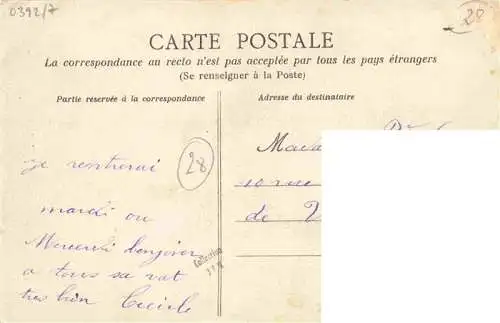 0392/7
28
CARTE POSTALE
La correspondance au recto n'est pas acceptée par tous les pays étrangers
(Se renseigner à la Poste)
Partie réservée à la correspondance
Adresse du destinataire
je rentrerai
28
mardi ou
Mercredi bonjour
a tous sa vat
tres bien Cecile
Collection
Mada
10 rue
de V